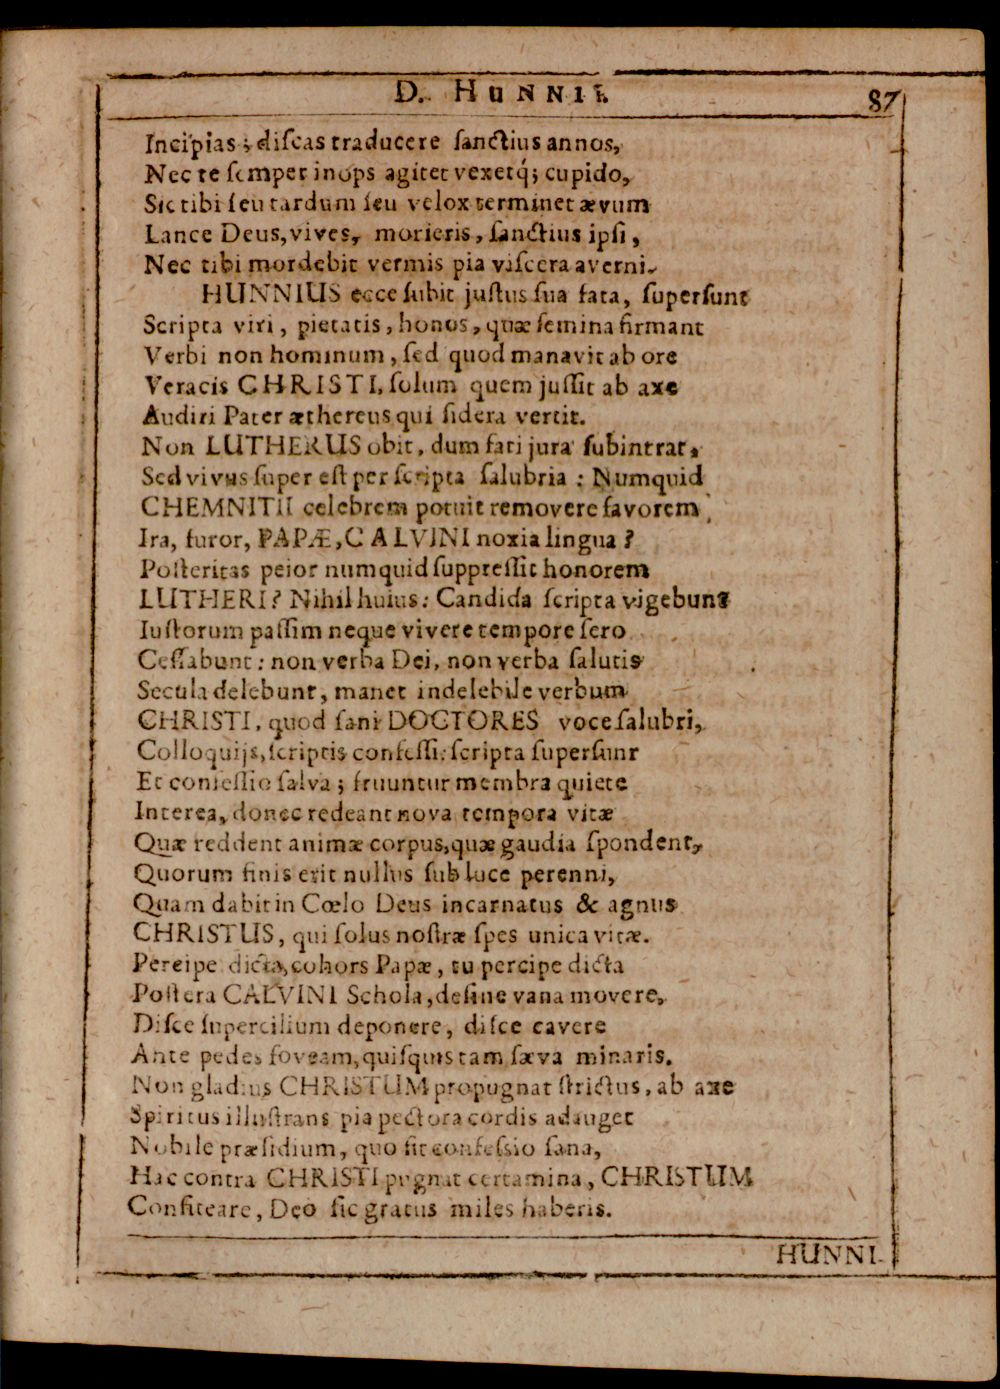 D. HUNNII.
87
Incipias; diſcas traducere ſanctius annos,
Nec te ſemper inops agitet vexetq́; cupido,
Sic tibi ſeu tardum ſeu velox terminet ævum
Lance Deus, vives, morieris, ſanctius ipſi,
Nec tibi mordebit vermis pia viſcera averni.
HUNNIUS ecce ſubit juſtus ſua fata, ſuperſunt
Scripta viri, pietatis, honos, quæ ſemina firmant
Verbi non hominum, ſed quod manavit ab ore
Veracis CHRISTI, ſolum quem juſſit ab axe
Audiri Pater æthereus qui ſidera vertit.
Non LUTHERUS obit, dum fati jura ſubintrat,
Sed vivus ſuper eſt per ſcripta ſalubria: Numquid
CHEMNITII celebrem potuit removere favorem
Ira, furor, PAPÆ, CALVINI noxia lingua?
Poſteritas peior numquid ſuppreſſit honorem
LUTHERI? Nihil huius: Candida ſcripta vigebunt
Iuſtorum paſſim neque vivere tempore ſero
Ceſſabunt: non verba Dei, non verba ſalutis
Secula delebunt, manet indelebile verbum
CHRISTI, quod ſani DOCTORES voce ſalubri,
Colloquijs, ſcriptis confeſſi: ſcripta ſuperſunt
Et confeſſio ſalva; fruuntur membra quiete
Interea, donec redeant nova tempora vitæ
Quæ reddent animæ corpus, quæ gaudia ſpondent,
Quorum finis erit nullus ſub luce perenni,
Quam dabit in Cœlo Deus incarnatus & agnus
CHRISTUS, qui ſolus noſtræ ſpes unica vitæ.
Percipe dicta, cohors Papæ, tu percipe dicta
Poſtera CALVINI Schola, deſine vana movere,
Diſce ſupercilium deponere, diſce cavere
Ante pedes foveam, quiſquis tam ſæva minaris.
Non gladius CHRISTUM propugnat ſtrictus, ab axe
Spiritus illuſtrans pia pectora cordis adauget
Nobile præſidium, quo ſit confeſsio ſana,
Hac contra CHRISTI pugnat certamina, CHRISTUM
Confiteare, Deo ſic gratus miles haberis.
HUNNI.